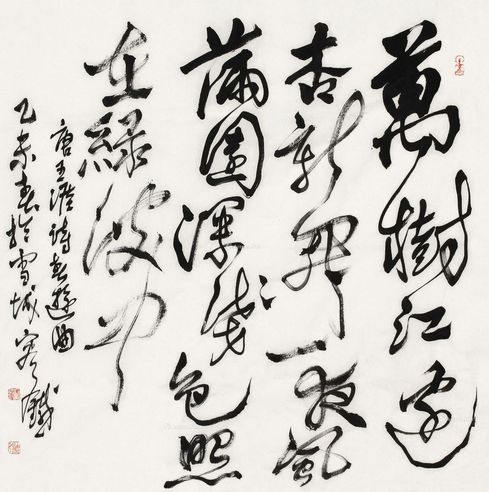 萬樹江邊
杏新開一夜風
滿園深淺色照
在綠波中
唐王涯詩春遊曲
乙未春於雪城